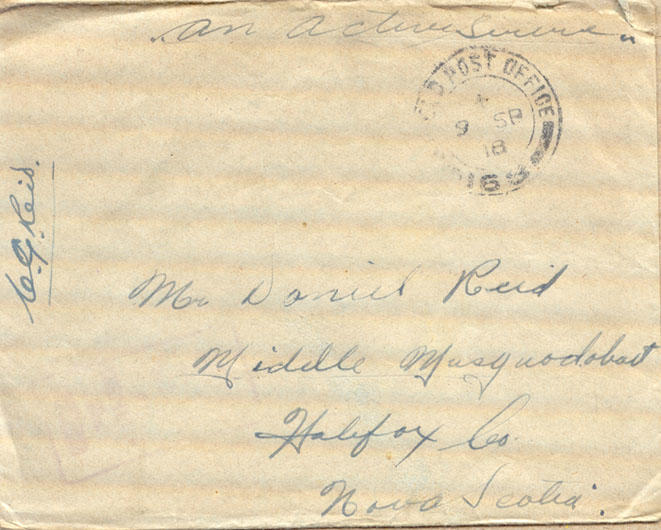 "an active Service"
FIELD POST OFFICE
9 SP
18
C.G. Reid.
Mr Daniel Reid
Middle Musquodoboit
Halifax Co.
Nova Scotia.